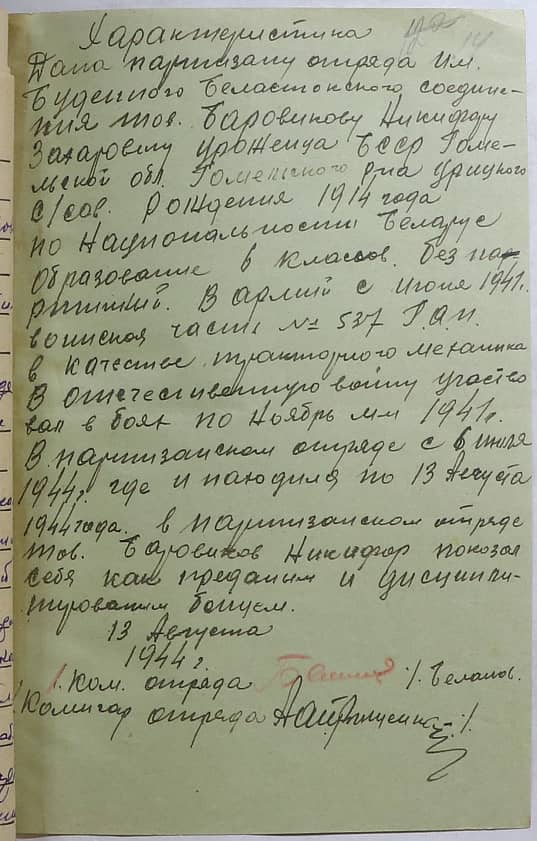 Характеристика 14
Дана партизану отряда им.
Буденного Беластокского соедине-
ния тов. Баровикову Никифару
Захаровичу уроженца БССР Гоме-
льской обл. Гомельского р-на Урицкого
с/сов. рождения 1914 года
по национальности Беларус
образование 6 классов. Без па-
ртийный. В армий с июня 1941г.
воинская часть № 537 Г.А.П.
в качестве тракторного механика
В отечественную войну участво
вал в боях по Ноябрь м-ц 1941г.
В партизанском отряде с 6 июля
1944г. где и находился по 13 Августа
1944 года. в партизанском отряде
тов. Баровиков Никифар показал
себя как преданым и дисципли-
нированым бойцем.
13 Августа
1944 г.
Ком. отряда /. Беланов.
Комиссар отряда